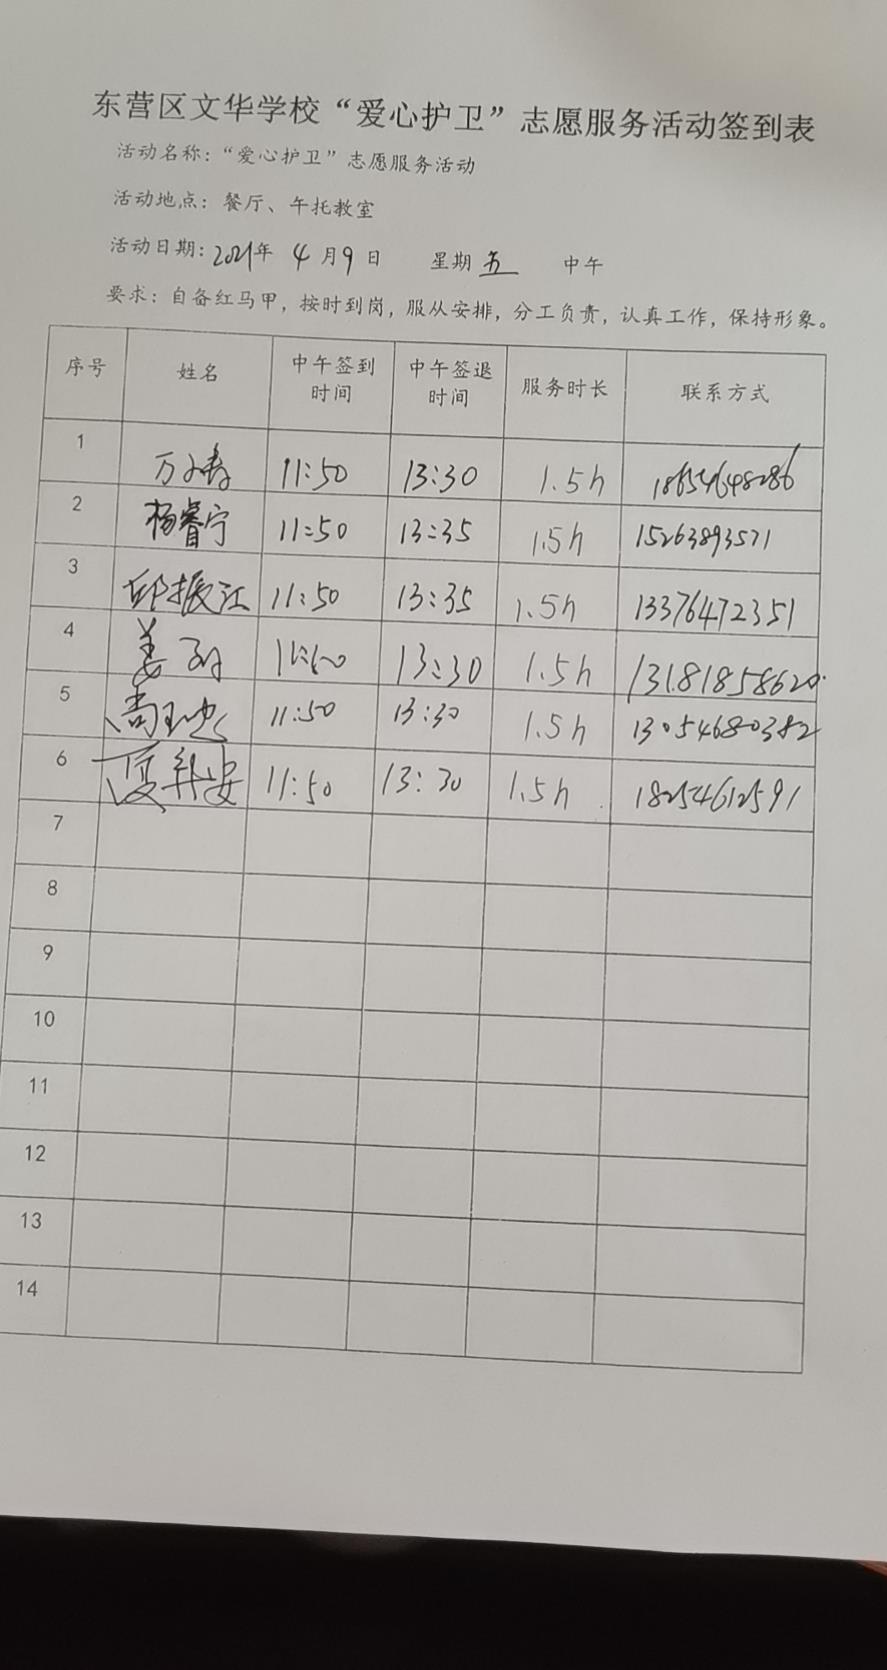 东营区文华学校“爱心护卫”志愿服务活动签到表
活动名称：“爱心护卫”志愿服务活动
活动地点：餐厅、午托教室
活动日期：2021年 4 月 9 日 星期 五 中午
要求：自备红马甲，按时到岗，服从安排，分工负责，认真工作，保持形象。
序号 姓名 中午签到时间 中午签退时间 服务时长 联系方式
1 11:50 13:30 1.5h 18654648286
2 杨睿宁 11:50 13:35 1.5h 15263893571
3 邱振江 11:50 13:35 1.5h 13376472351
4 姜 13:30 1.5h 13181858620
5 11:50 13:30 1.5h 13054680382
6 夏 安 11:50 13:30 1.5h 18254612591
7
8
9
10
11
12
13
14